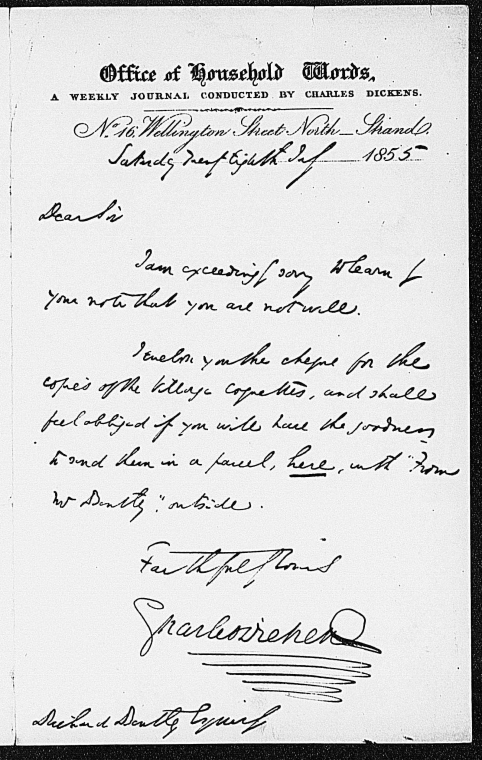 Office of Household Words,
A WEEKLY JOURNAL CONDUCTED BY CHARLES DICKENS.
No. 16, Wellington Street North, Strand.
Saturday Twenty Eighth July 1855
Dear Sir
I am exceedingly sorry to learn by
your note that you are not well.
I enclose you the cheque for the
copies of the Village Coquettes, and shall
feel obliged if you will have the goodness
to send them in a parcel, here, with "From
Mr Bentley" outside.
Faithfully Yours
Charles Dickens
Richard Bentley Esquire